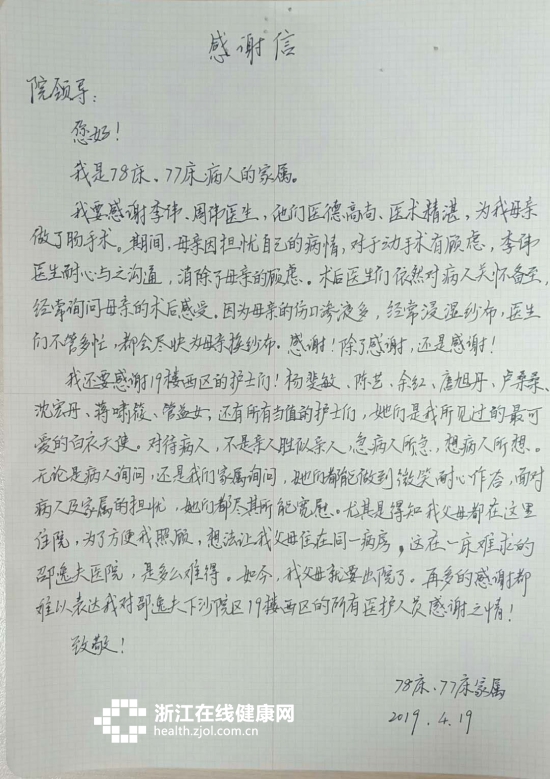 感谢信
院领导：
您好！
我是78床、77床病人的家属。
我要感谢李伟、周伟医生，他们医德高尚、医术精湛，为我母亲
做了肠手术。期间，母亲因担忧自己的病情，对于动手术有顾虑，李伟
医生耐心与之沟通，消除了母亲的顾虑。术后医生们依然对病人关怀备至，
经常询问母亲的术后感受。因为母亲的伤口渗液多，经常浸湿纱布，医生
们不管多忙，都会尽快为母亲换纱布。感谢！除了感谢，还是感谢！
我还要感谢19楼西区的护士们！杨斐敏、陈芸、余红、唐旭丹、卢桑桑、
沈宏丹、蒋啸筱、管益女；还有所有当值的护士们，她们是我所见过的最可
爱的白衣天使。对待病人，不是亲人胜似亲人，急病人所急，想病人所想。
无论是病人询问，还是我们家属询问，她们都能做到微笑耐心作答，面对
病人及家属的担忧，她们都尽其所能宽慰。尤其是得知我父母都在这里
住院，为了方便我照顾，想法让我父母住在同一病房，这在一床难求的
邵逸夫医院，是多么难得。如今，我父母就要出院了。再多的感谢都
难以表达我对邵逸夫下沙院区19楼西区的所有医护人员感谢之情！
致敬！
78床、77床家属
2019.4.19
浙江在线健康网
health.zjol.com.cn